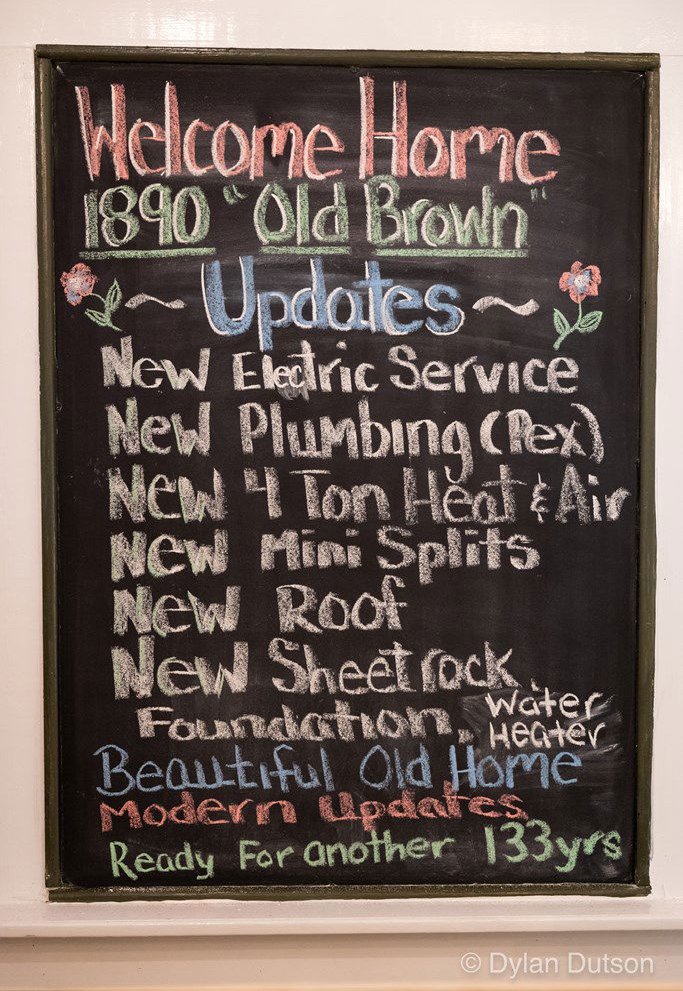 Welcome Home
1890 "Old Brown"
~ Updates ~
New Electric Service
New Plumbing (Pex)
New 4 Ton Heat & Air
New Mini Splits
New Roof
New Sheetrock
Foundation, Water Heater
Beautiful Old Home
Modern Updates
Ready For another 133yrs
© Dylan Dutson